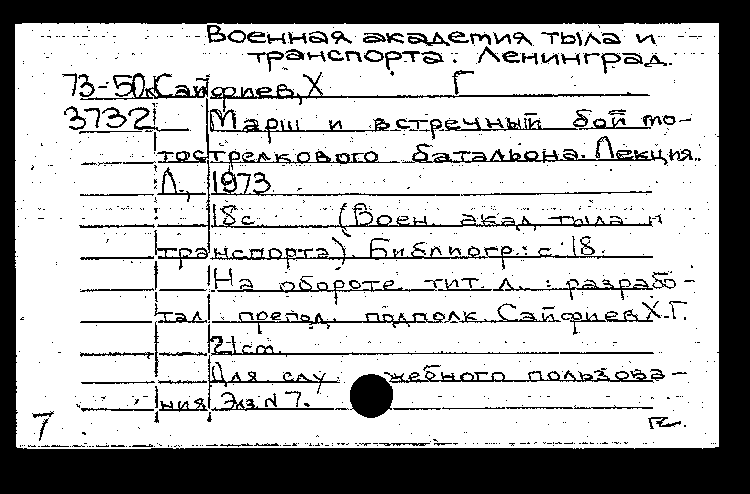 Военная академия тыла и
транспорта. Ленинград.
73-50к Сайфиев, Х Г
3732 Марш и встречный бой мо-
тострелкового батальона. Лекция.
Л., 1973
18с. (Воен. акад. тыла и
транспорта). Библиогр.: с. 18.
На обороте тит. л.: разрабо-
тал препод. подполк. Сайфиев Х.Г.
21 cm.
Для служебного пользова-
ния Экз. N 7.
7